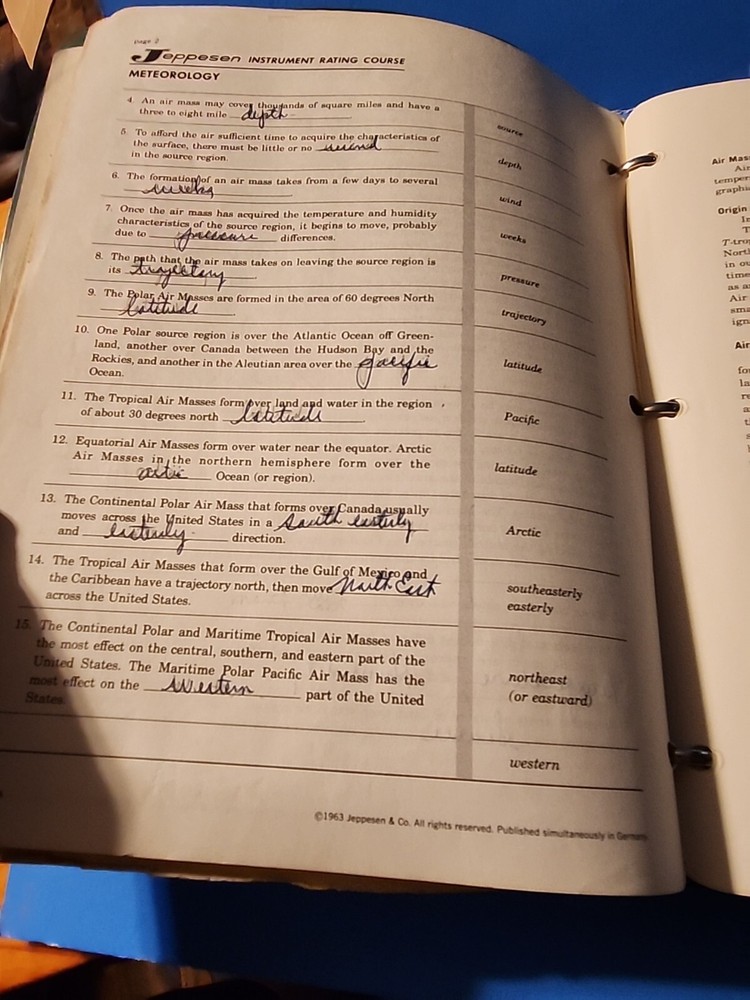 page 2
Jeppesen INSTRUMENT RATING COURSE
METEOROLOGY
4. An air mass may cover thousands of square miles and have a
three to eight mile depth
source
5. To afford the air sufficient time to acquire the characteristics of
the surface, there must be little or no
in the source region.
depth
6. The formation of an air mass takes from a few days to several
weeks
wind
7. Once the air mass has acquired the temperature and humidity
characteristics of the source region, it begins to move, probably
due to pressure differences.
weeks
8. The path that the air mass takes on leaving the source region is
its trajectory
pressure
9. The Polar Air Masses are formed in the area of 60 degrees North
latitude
trajectory
10. One Polar source region is over the Atlantic Ocean off Green-
land, another over Canada between the Hudson Bay and the
Rockies, and another in the Aleutian area over the pacific
Ocean.
latitude
11. The Tropical Air Masses form over land and water in the region
of about 30 degrees north latitude
Pacific
12. Equatorial Air Masses form over water near the equator. Arctic
Air Masses in the northern hemisphere form over the
artic Ocean (or region).
latitude
13. The Continental Polar Air Mass that forms over Canada usually
moves across the United States in a South easterly
and easterly direction.
Arctic
14. The Tropical Air Masses that form over the Gulf of Mexico and
the Caribbean have a trajectory north, then move North East
across the United States.
southeasterly
easterly
15. The Continental Polar and Maritime Tropical Air Masses have
the most effect on the central, southern, and eastern part of the
United States. The Maritime Polar Pacific Air Mass has the
most effect on the Western part of the United
States.
northeast
(or eastward)
western
©1963 Jeppesen & Co. All rights reserved. Published simultaneously in Germany
Air
Origin
Air